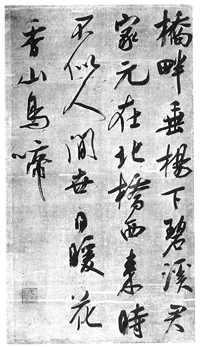 橋畔垂楊下碧溪君
家元在北橋西來時
不似人間世日暖花
香山鳥啼